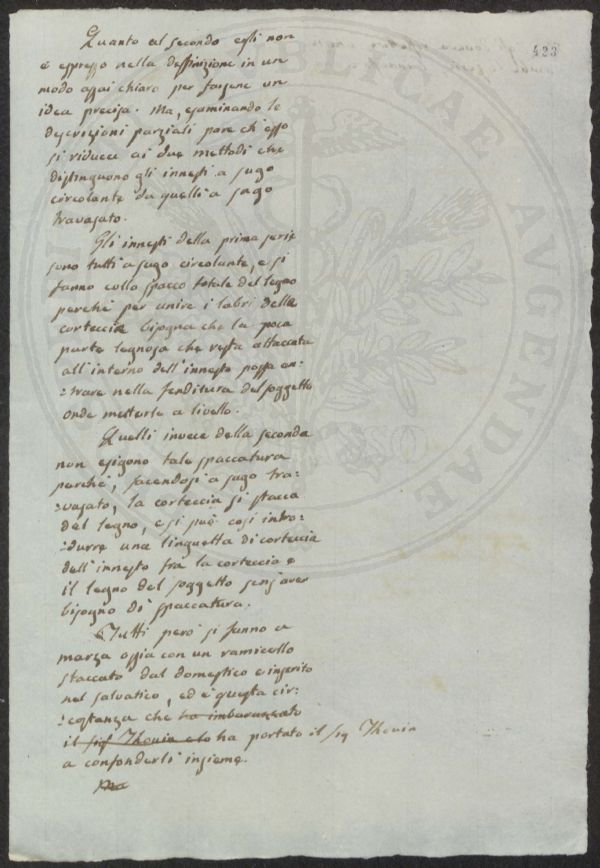 423
Quanto al secondo egli non
è espresso nella deffinizione in un
modo assai chiaro per farsene un
idea precisa. Ma, esaminando le
descrizioni parziali pare ch'esso
si riduca ai due mettodi che
distinguono gli innesti a sugo
circolante da quelli a sugo
travasato.
Gli innesti della prima serie
sono tutti a sugo circolante, e si
fanno collo spacco totale del legno
perchè per unire i labri della
corteccia bisogna che la poca
parte legnosa che resta attaccata
all'interno dell'innesto possa en:
:trare nella fenditura del soggetto
onde metterle a livello.
Quelli invece della seconda
non esigono tale spaccatura
perchè, facendosi a sugo tra:
:vasato, la corteccia si stacca
dal legno, e si può così intro:
:durre una linguetta di corteccia
dell'innesto fra la corteccia e
il legno del soggetto senz'aver
bisogno di spaccatura.
Tutti però si fanno a
marza ossia con un ramicello
staccato dal domestico e inserito
nel salvatico, ed è questa cir:
:costanza che ha imbarazzato
il sigr Thouin e lo ha portato il sig Thouin
a confonderli insieme.